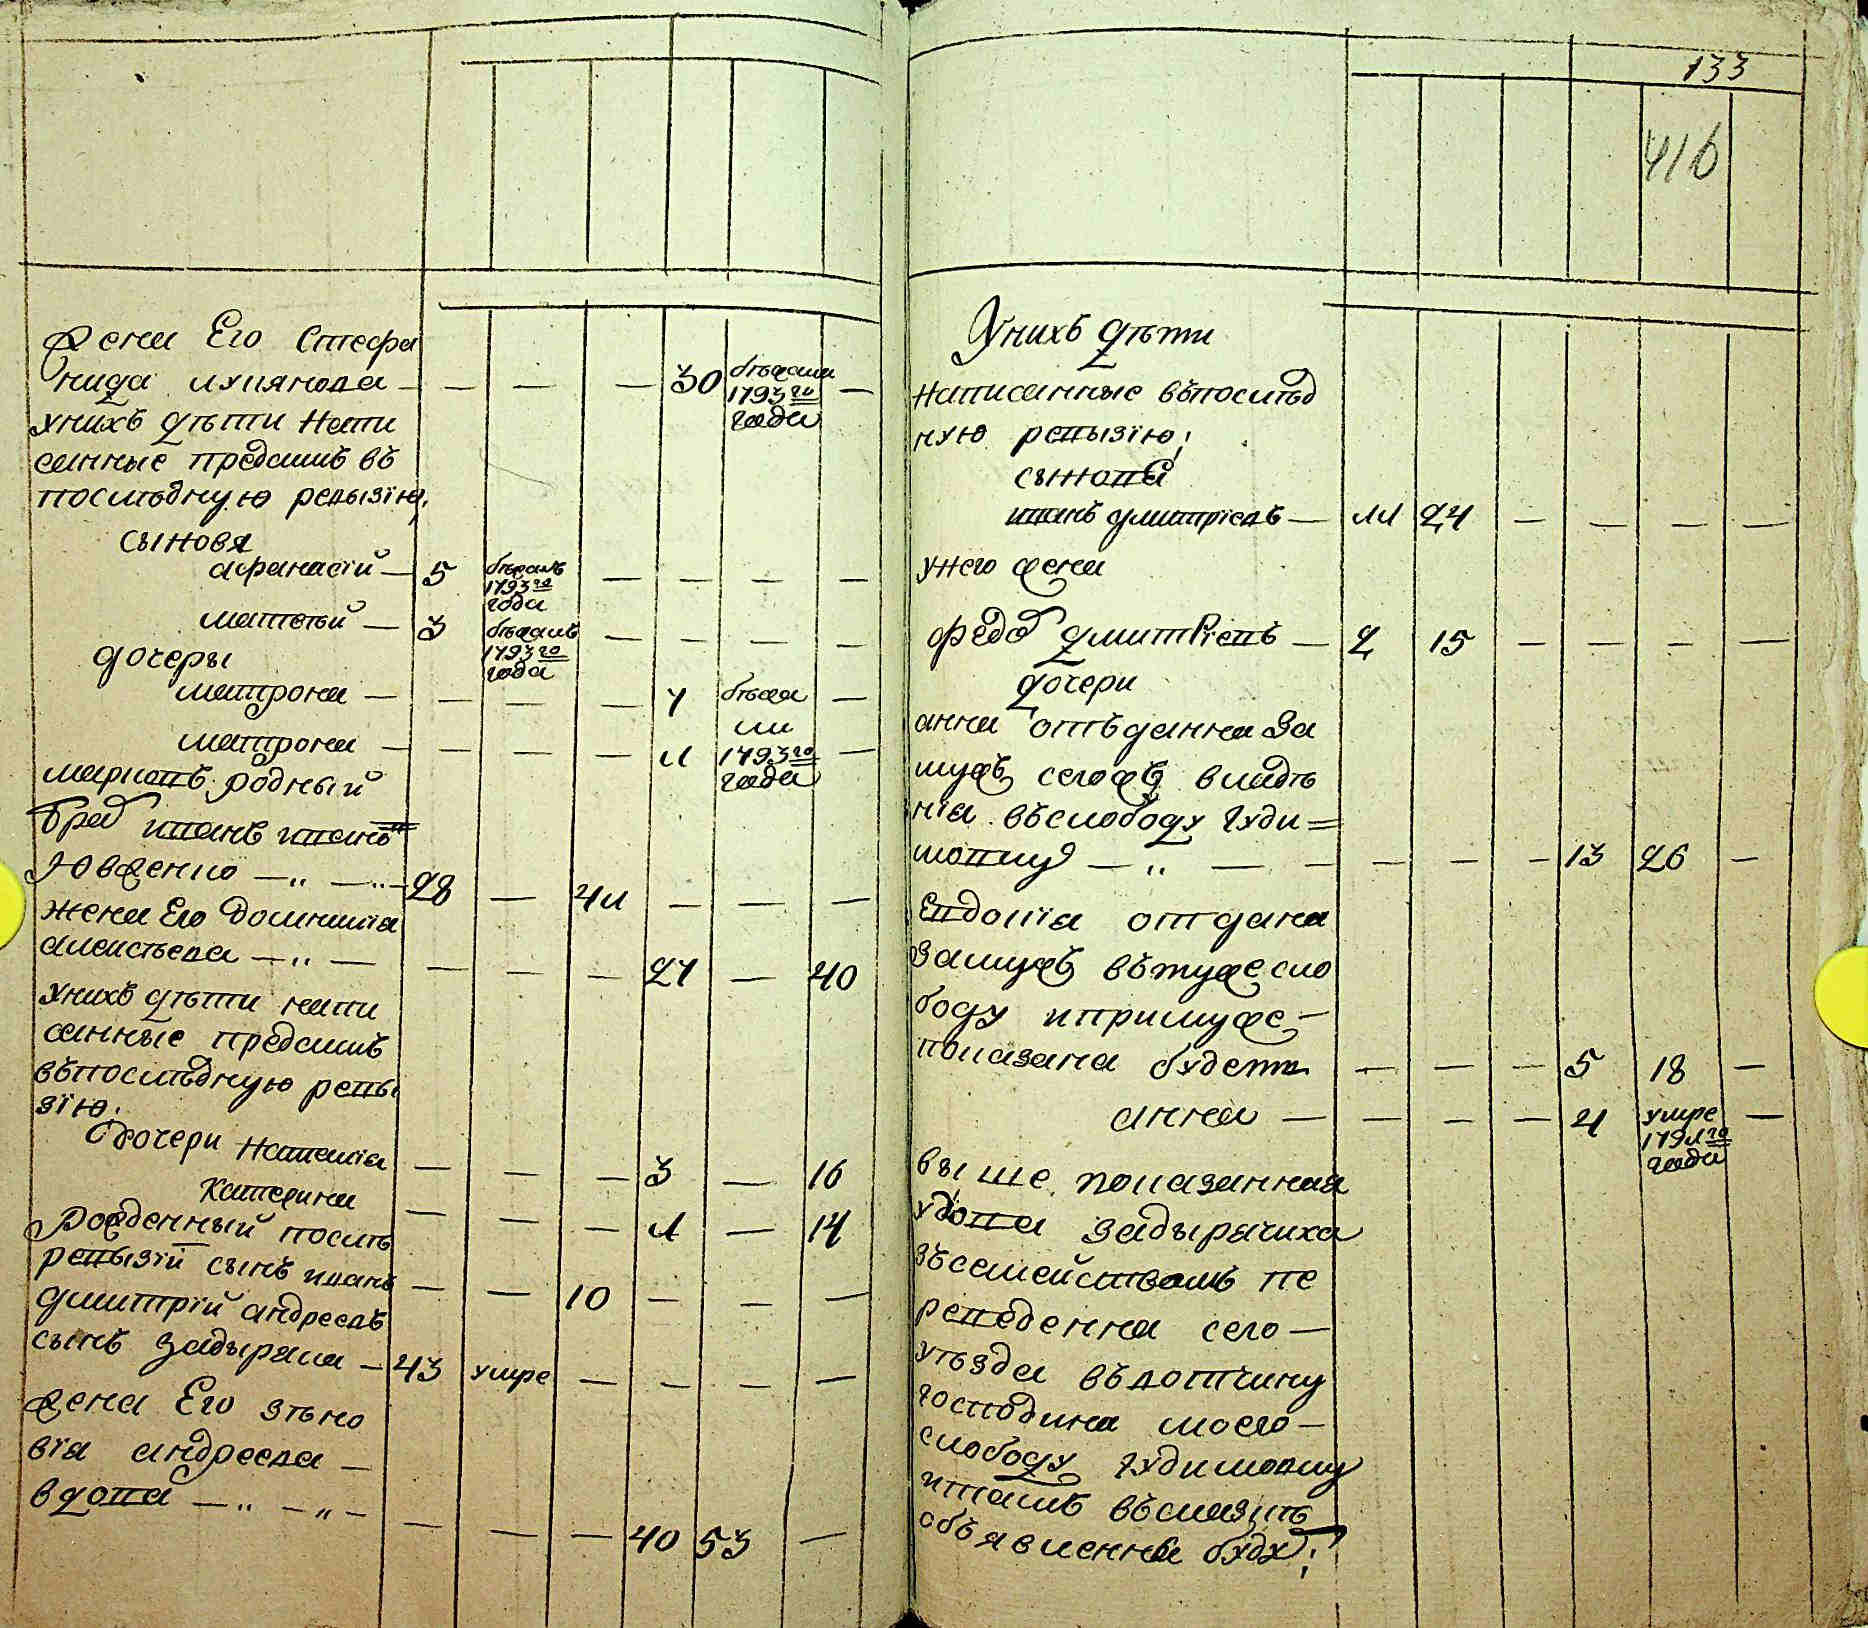 жена Его Стефа
нида лукянова — — — — 30 бѣжала 1793го года —
унихъ дѣти напи
санные предсимъ въ
последную ревызїю,
сыновя
афанасїй — 5 бѣжалъ 1793го года — — — —
матвѣй — 3 бѣжалъ 1793го года — — — —
дочеры
матрона — — — — 7 бѣжа —
матрона — — — — 1 ли 1793го года —
марковъ родный
брад иванъ иванъ
Ювженко — „ — „ — 28 — 41 — — —
жена Его Домникїя
алексѣева — „ — — — — 27 — 40
унихъ дѣти напи
санные предсимъ
въпослѣдную ревы
зїю.
дочери Наталїа — — — 3 — 16
Катерина — — — 1 — 14
Рожденный послѣ
ревызїй сынъ иванъ — — 10 — — —
дмитрїй андреевъ
сынъ задырака — 43 умре — — — —
жена Его зѣно
вїа андреева —
вдова — „ — „ — — — — 40 53 —
133
416
Унихъ дѣти
написанные въпослѣд
ную ревызїю;
сынова
иванъ дмитрїевъ — 11 24 — — — —
унего жена
федо дмитрїевъ — 2 15 — — — —
дочери
анна отъданна За
мужъ сегожъ владѣ
нїа въслободу гуди=
мовку — „ — — — — — 13 26 —
Евдокїа отдана
Замужъ вътужесло
боду ипримуже —
показана будетъ — — — 5 18 —
анна — — — — 4 умре 1791го года —
выше показанная
удова задырачиха
зъсемействомъ пе
реведенна сего —
уѣзда въвотчину
господина моего —
слободу гудимовку
итамъ въсказкѣ
объявленны буду;